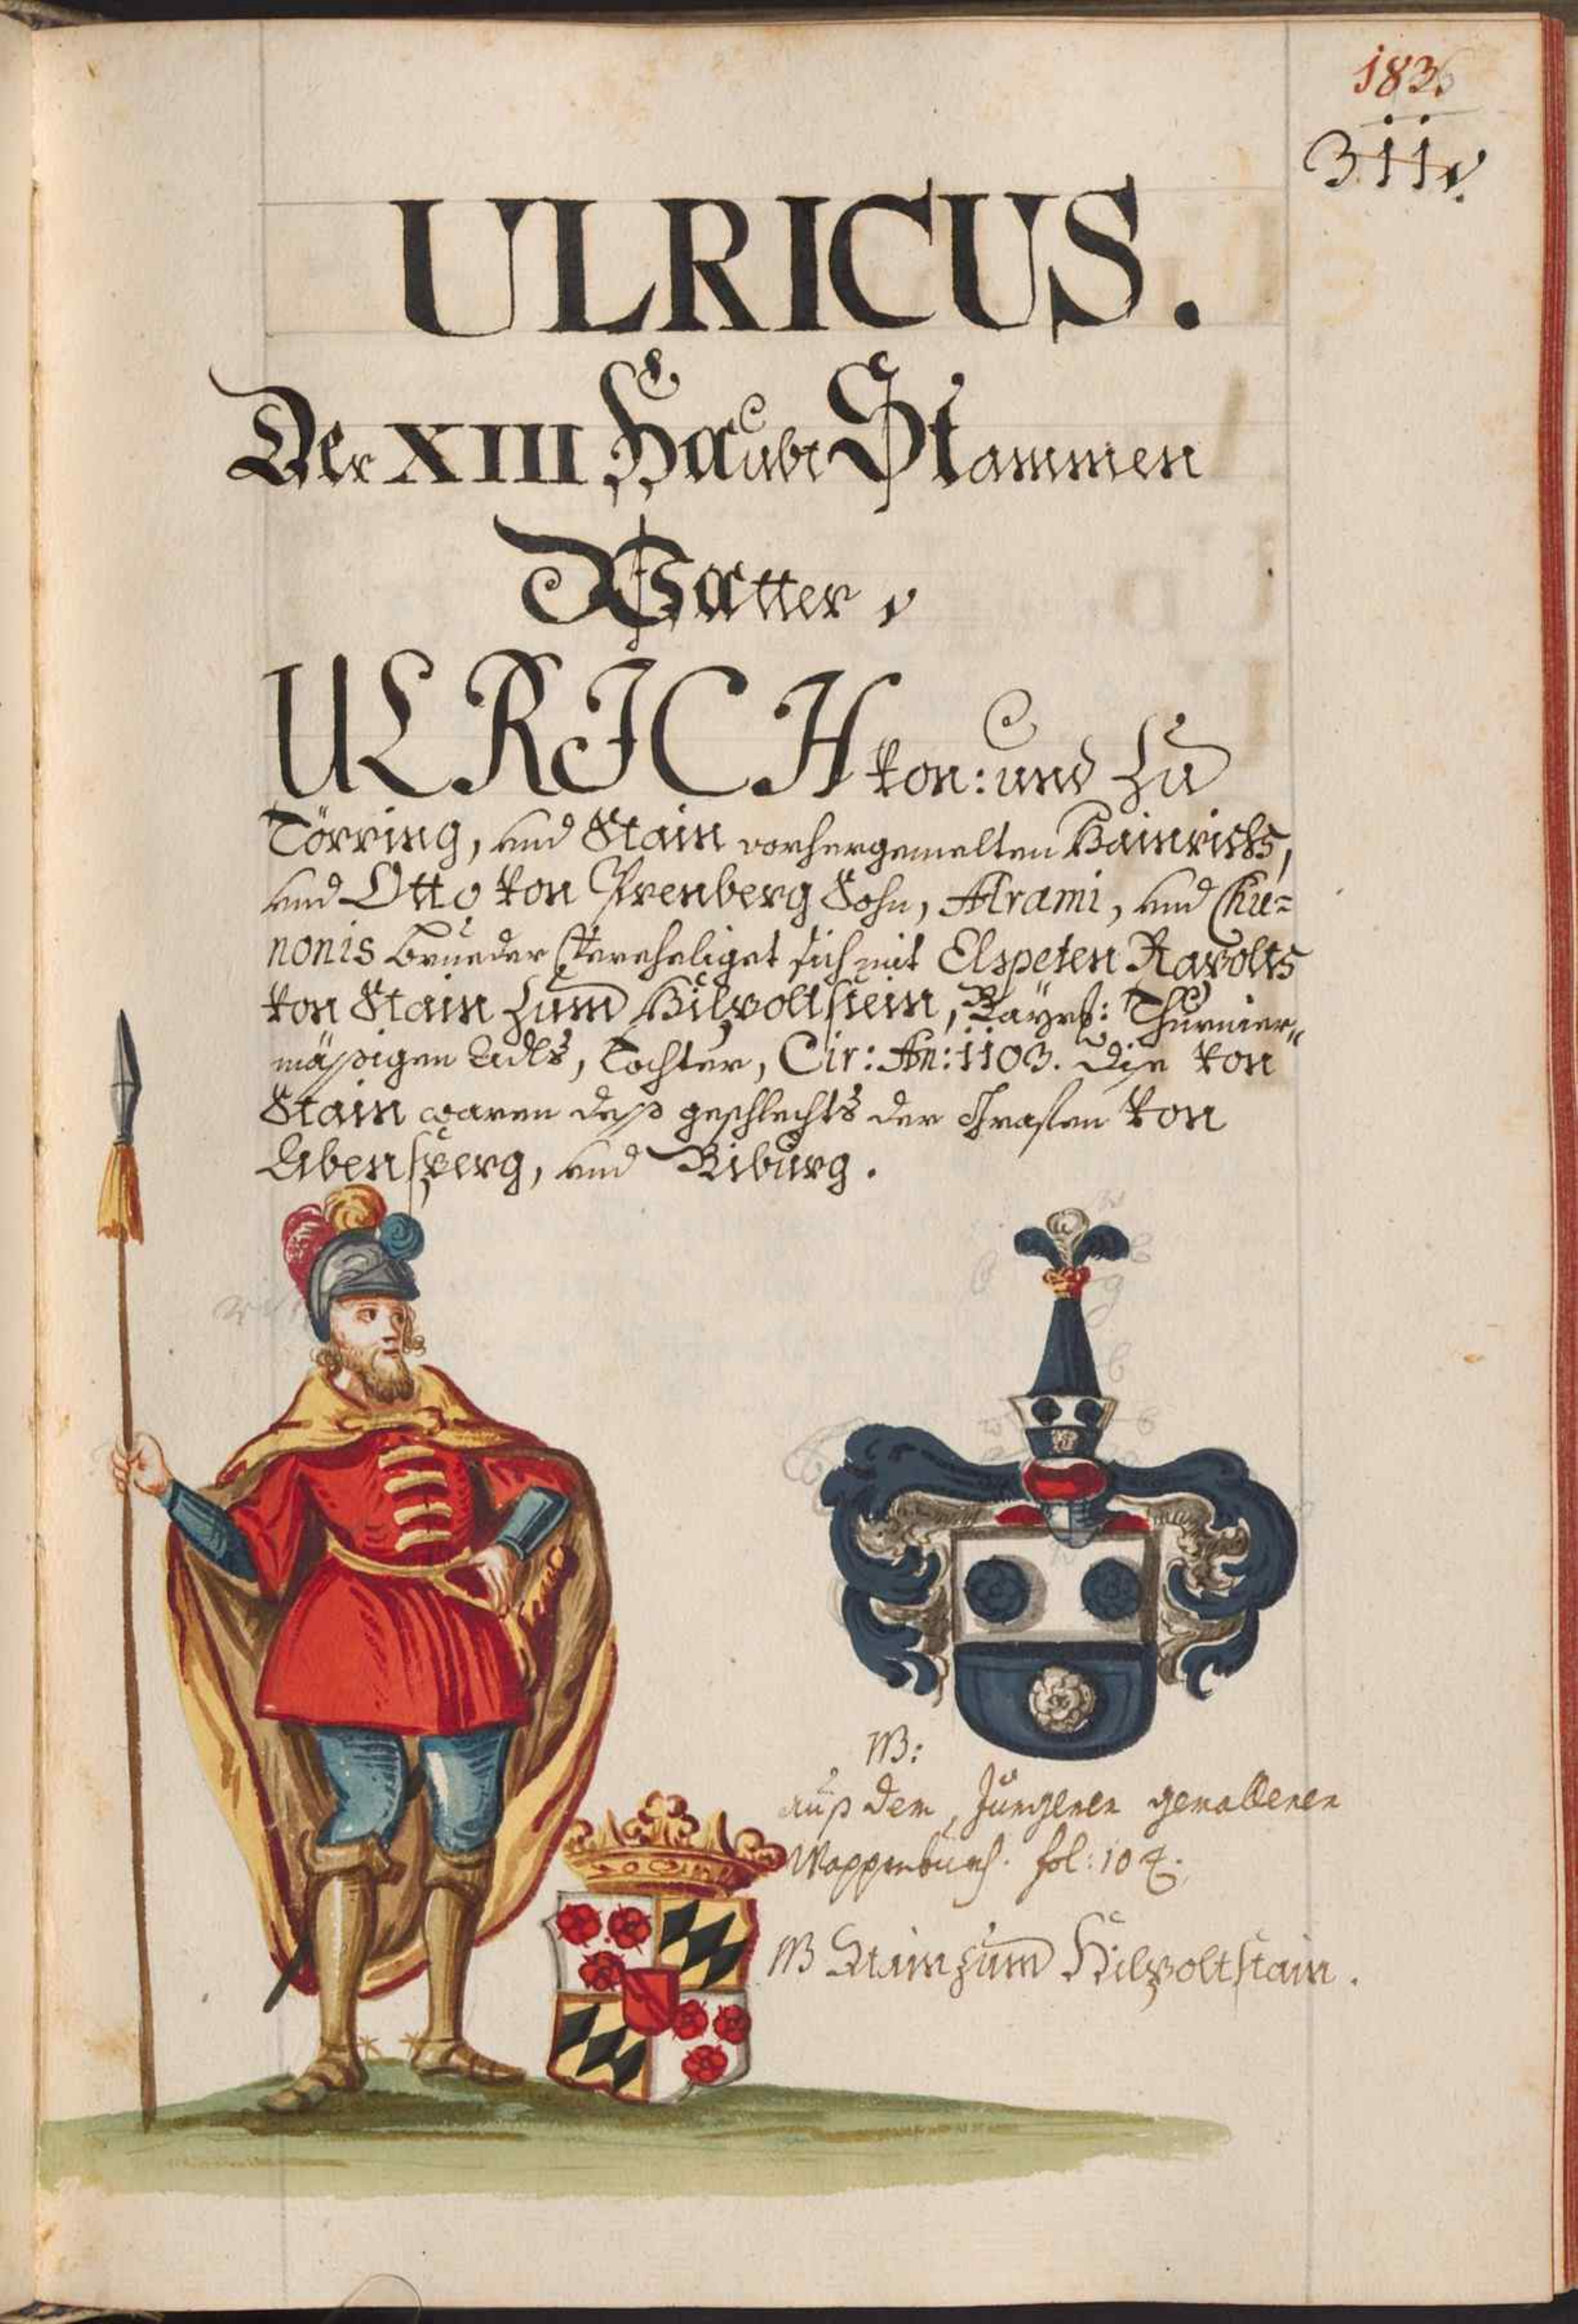 183.
311.
ULRICUS.
Der XIII Haubt Stammen
Vatter,
ULRICH von: und zu
Törring, und Stain vorhergemelten Hainrichs,
und Otto von Prenberg Sohn, Arami, und Chu=
nonis Brueder Vereheliget sich mit Elspeten Rapolts
von Stain zum Hilpoltstein, Bayrß: Thurnier„
mässigen Adls, Tochter, Cir: An: 1103. Die von
Stain waren deß geschlechts der Grafen von
Abensperg, und Biburg.
NB:
auß dem, Jungeren gemalleren
Wappenbuech. fol: 104.
NB Stain zum Hilpoltstain.